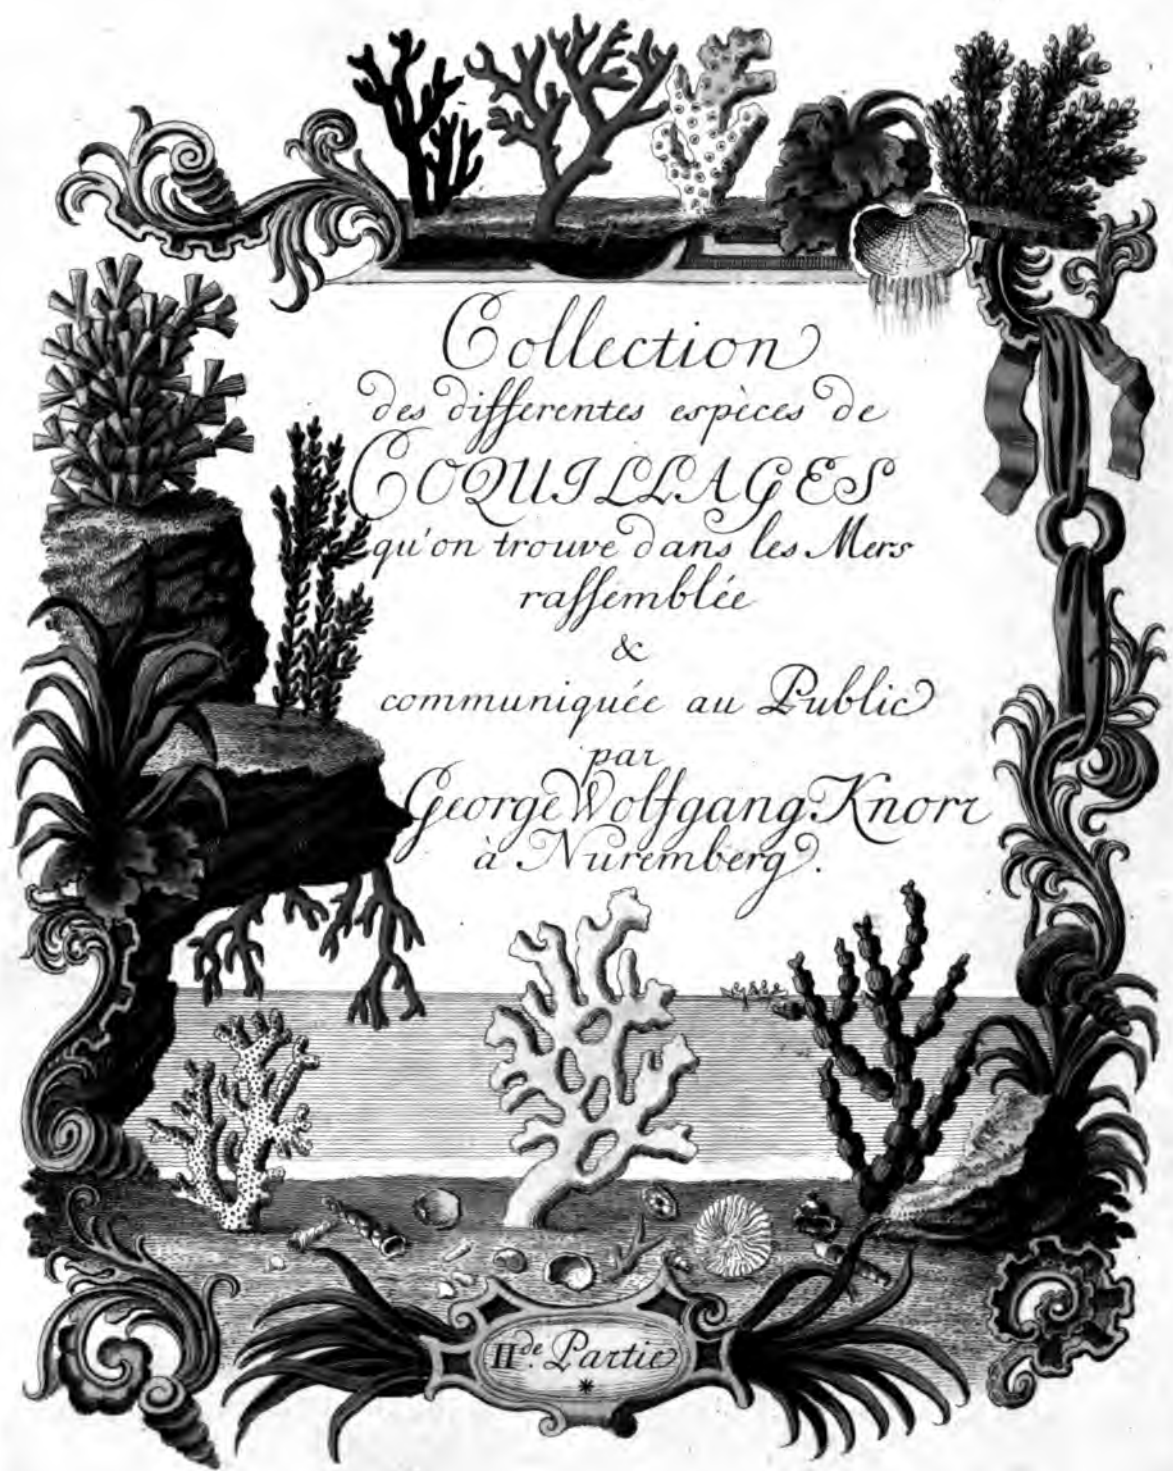 Collection
des differentes espèces de
COQUILLAGES
qu'on trouve dans les Mers
raſſemblée
&
communiquée au Public
par
George Wolfgang Knorr
à Nuremberg.
IIde. Partie
*